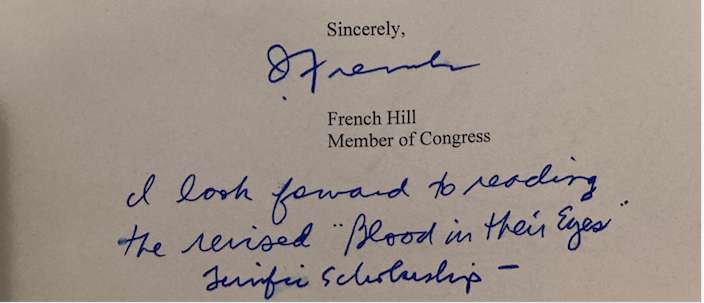 Sincerely,
French
French Hill
Member of Congress
I look forward to reading
the revised "Blood in their Eyes"
Terrific Scholarship —